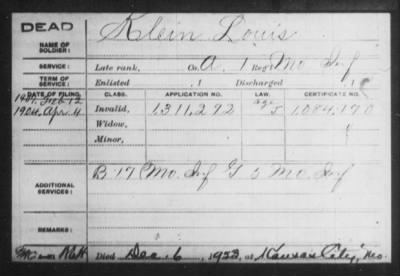 DEAD
NAME OF SOLDIER: Klein Louis
SERVICE: Late rank, Co. A, 1 Reg't Mo. Inf
TERM OF SERVICE: Enlisted , 1 Discharged , 1
DATE OF FILING. CLASS. APPLICATION NO. LAW. CERTIFICATE NO.
Feb. 12 Invalid, 1,311,292 1,084,170
1904, Apr. 4 Widow,
Minor,
ADDITIONAL SERVICES: B 17 Mo. Inf G 5 Mo. Inf
REMARKS:
Died Dec. 6, 1923, at Kansas City, Mo.